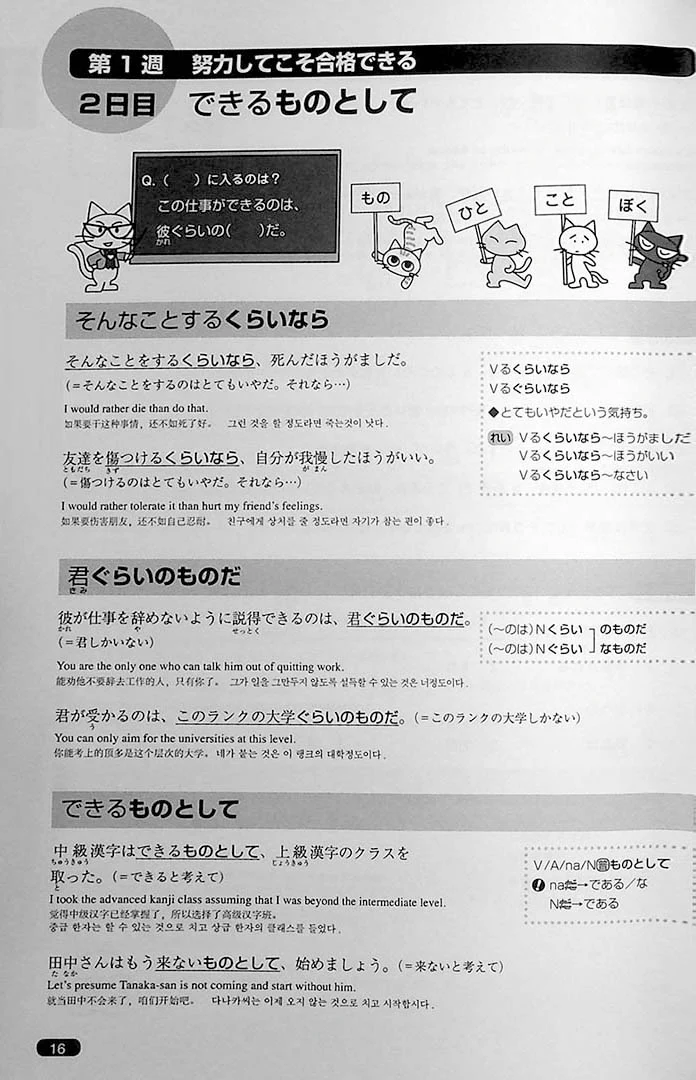 第1週 努力してこそ合格できる
2日目 できるものとして
Q.( )に入るのは?
この仕事ができるのは、
彼ぐらいの( )だ。
かれ
もの
ひと
こと
ぼく
そんなことするくらいなら
そんなことをするくらいなら、死んだほうがましだ。
(=そんなことをするのはとてもいやだ。それなら…)
I would rather die than do that.
如果要干这种事情，还不如死了好。 그런 것을 할 정도라면 죽는것이 낫다.
友達を傷つけるくらいなら、自分が我慢したほうがいい。
ともだち きず がまん
(=傷つけるのはとてもいやだ。それなら…)
I would rather tolerate it than hurt my friend's feelings.
如果要伤害朋友，还不如自己忍耐。 친구에게 상처를 줄 정도라면 자기가 참는 편이 좋다.
Vるくらいなら
Vるぐらいなら
◆とてもいやだという気持ち。
れい Vるくらいなら〜ほうがましだ
Vるくらいなら〜ほうがいい
Vるくらいなら〜なさい
君ぐらいのものだ
きみ
彼が仕事を辞めないように説得できるのは、君ぐらいのものだ。
かれ や せっとく
(=君しかいない)
You are the only one who can talk him out of quitting work.
能劝他不要辞去工作的人，只有你了。 그가 일을 그만두지 않도록 설득할 수 있는 것은 너정도이다.
君が受かるのは、このランクの大学ぐらいのものだ。(=このランクの大学しかない)
う
You can only aim for the universities at this level.
你能考上的顶多是这个层次的大学。 네가 붙는 것은 이 랭크의 대학정도이다.
(〜のは)Nくらい のものだ
(〜のは)Nぐらい なものだ
できるものとして
中級漢字はできるものとして、上級漢字のクラスを
ちゅうきゅう じょうきゅう
取った。(=できると考えて)
と
I took the advanced kanji class assuming that I was beyond the intermediate level.
觉得中级汉字已经掌握了，所以选择了高级汉字班。
중급 한자는 할 수 있는 것으로 치고 상급 한자의 클래스를 들었다.
田中さんはもう来ないものとして、始めましょう。(=来ないと考えて)
たなか
Let's presume Tanaka-san is not coming and start without him.
就当田中不会来了，咱们开始吧。 다나카씨는 이제 오지 않는 것으로 치고 시작합시다.
V/A/na/N普ものとして
! naだ→である/な
Nだ→である
16